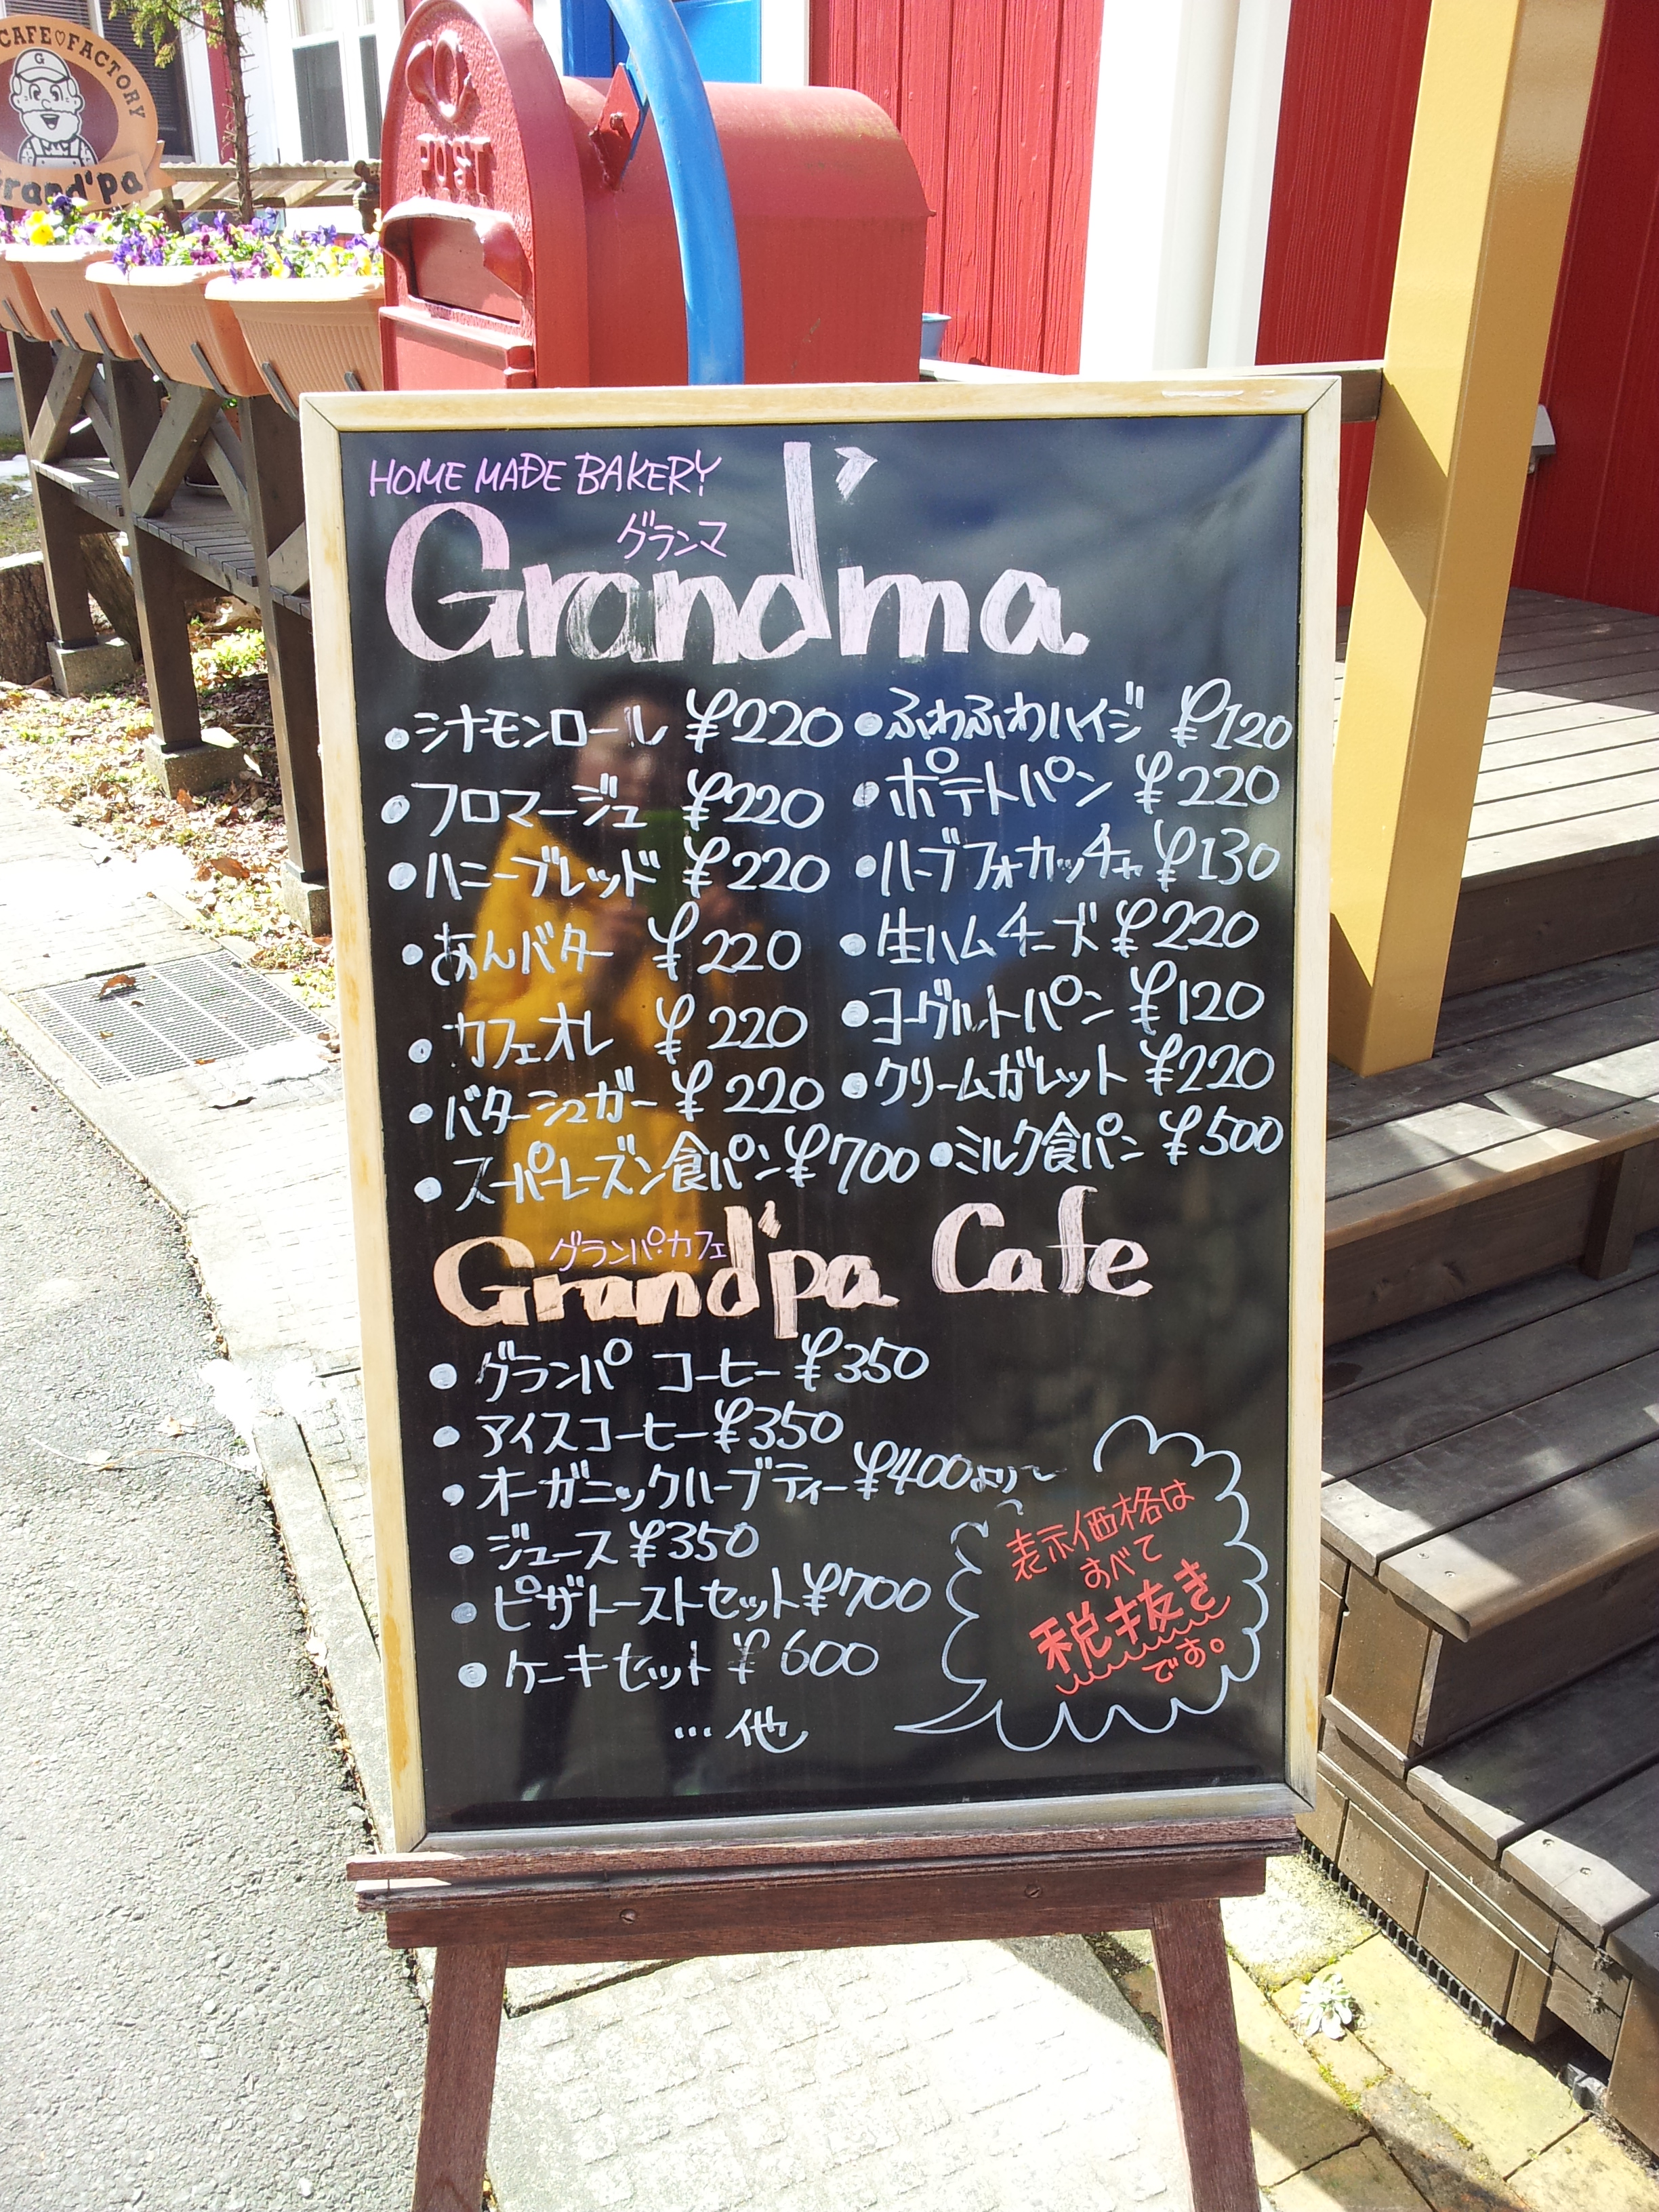 CAFE♡FACTORY
G
Grand'pa
POST
HOME MADE BAKERY
グランマ
Grand'ma
•シナモンロール ¥220
•フロマージュ ¥220
•ハニーブレッド ¥220
•あんバター ¥220
•カフェオレ ¥220
•バターシュガー ¥220
•スーパーレーズン食パン ¥700
•ふわふわハイジ ¥120
•ポテトパン ¥220
•ハーブフォカッチャ ¥130
•生ハムチーズ ¥220
•ヨーグルトパン ¥120
•クリームガレット ¥220
•ミルク食パン ¥500
グランパ・カフェ
Grand'pa Cafe
•グランパ コーヒー ¥350
•アイスコーヒー ¥350
•オーガニックハーブティー ¥400より〜
•ジュース ¥350
•ピザトーストセット ¥700
•ケーキセット ¥600
…他
表示価格は
すべて
税抜き
です。